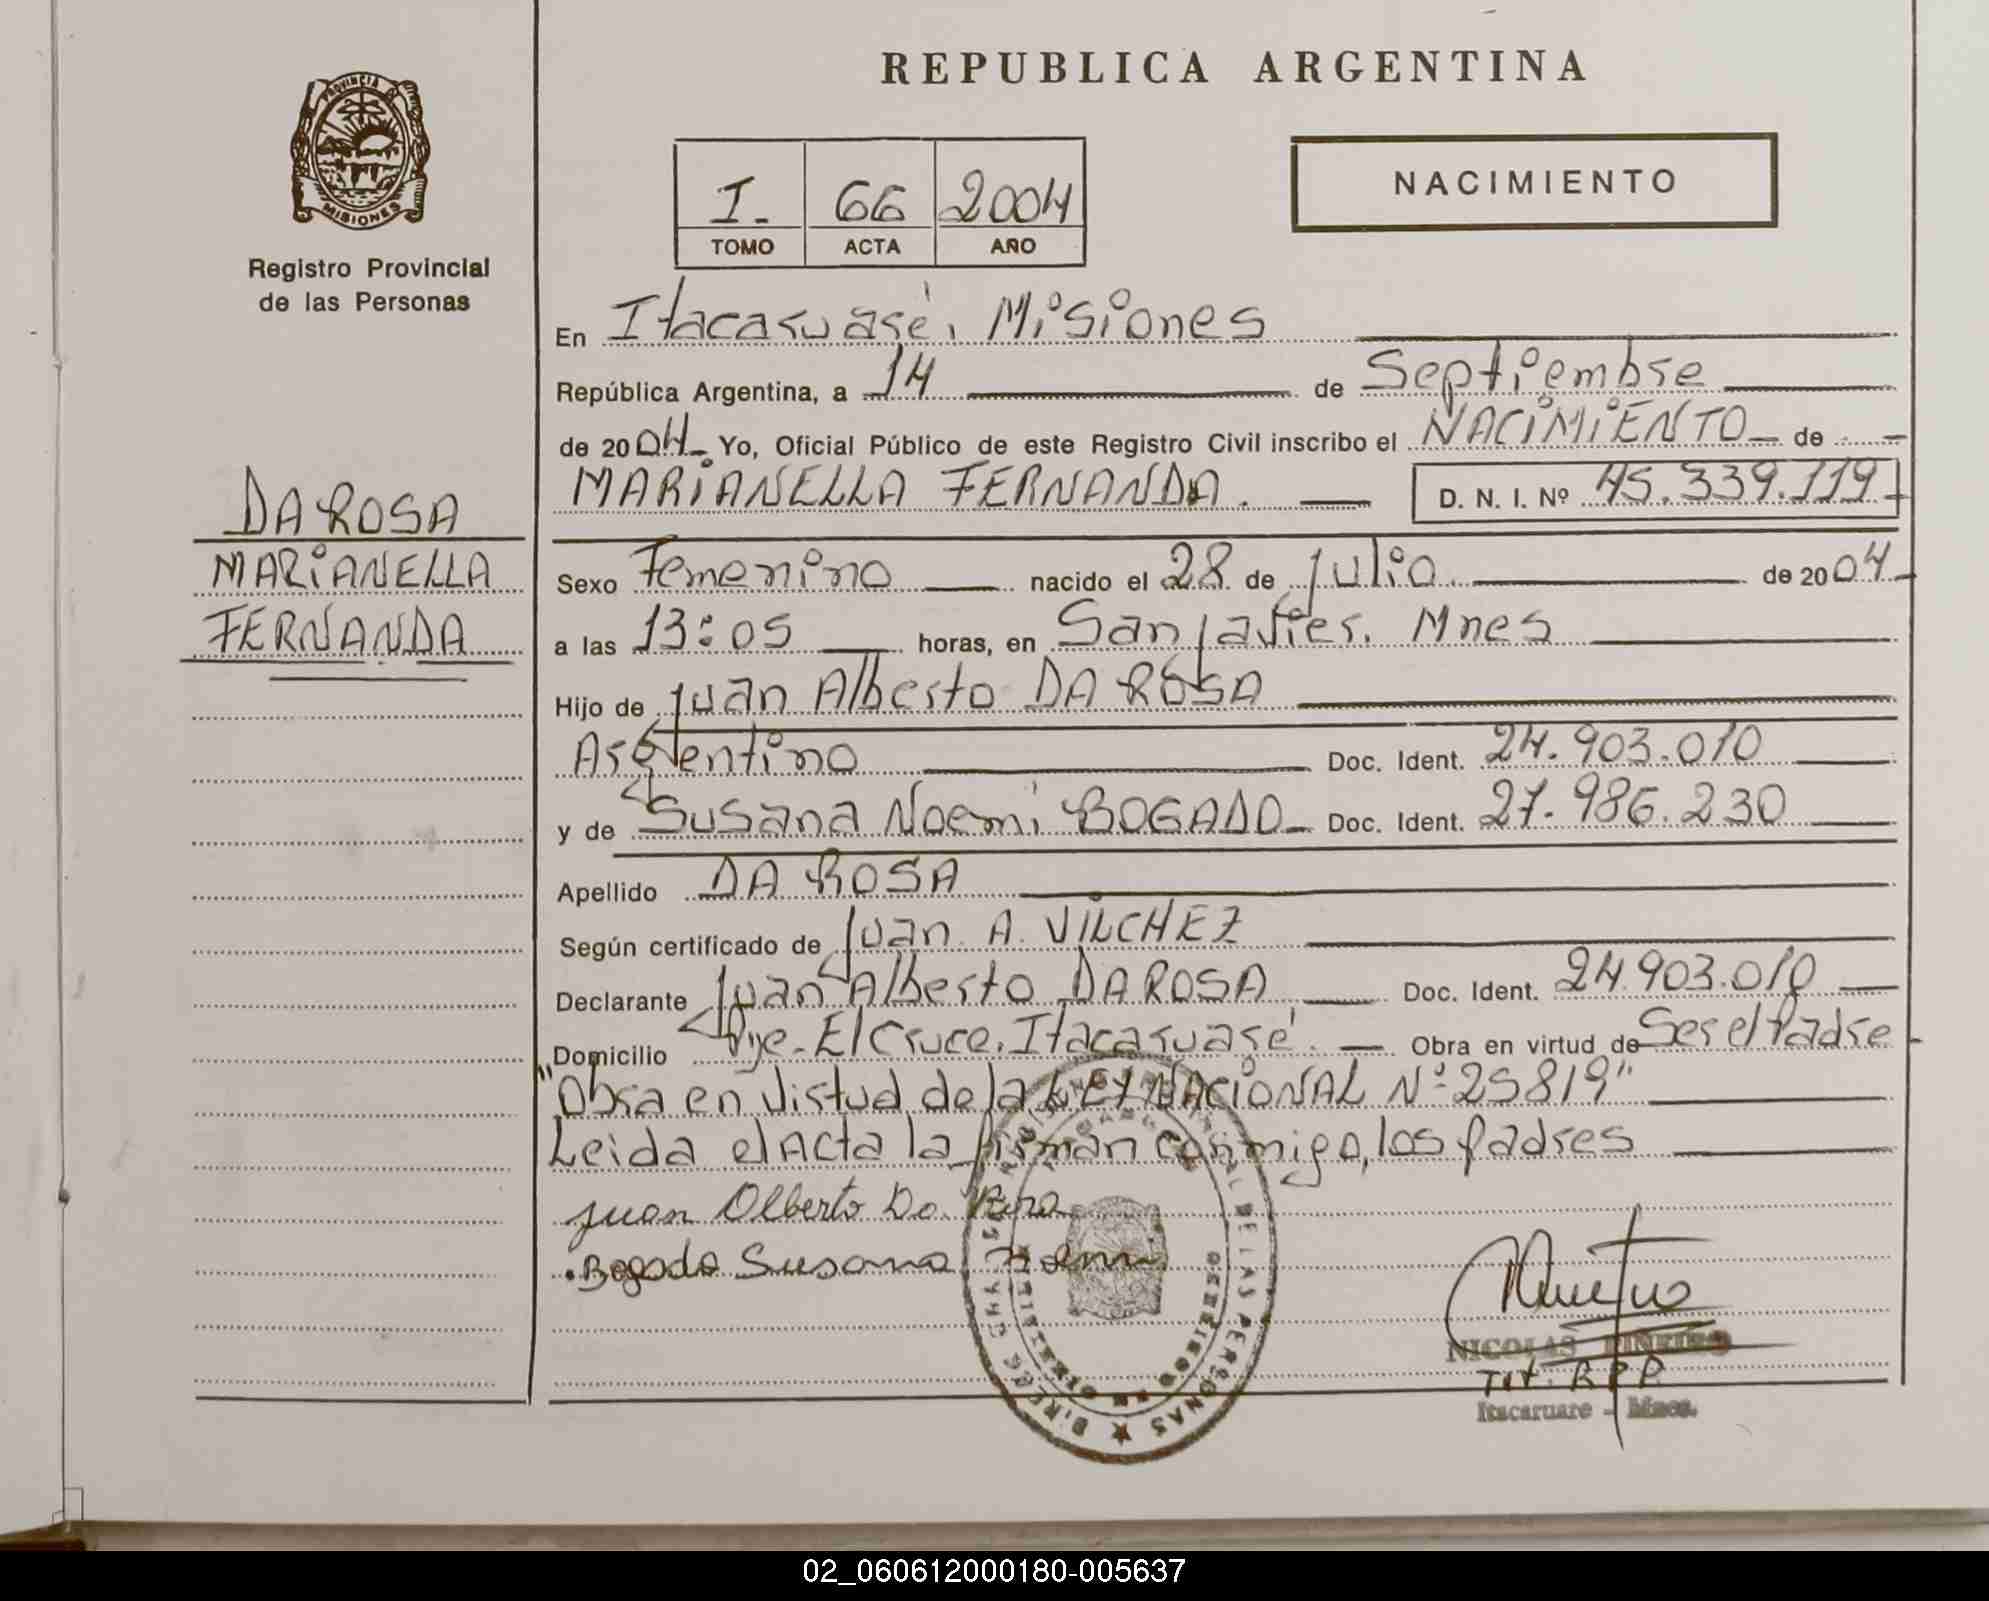 REPUBLICA ARGENTINA
PROVINCIA DE
MISIONES
Registro Provincial
de las Personas
I. 66 2004
TOMO ACTA AÑO
NACIMIENTO
En Itacaruaré, Misiones
República Argentina, a 14 de Septiembre
de 2004 Yo, Oficial Público de este Registro Civil inscribo el NACIMIENTO de
MARIANELLA FERNANDA. D. N. I. Nº 45.339.119
DA ROSA
MARIANELLA
FERNANDA
Sexo Femenino nacido el 28 de Julio de 2004
a las 13:05 horas, en San Javier. Mnes
Hijo de Juan Alberto DA ROSA
Argentino Doc. Ident. 24.903.010
y de Susana Noemí BOGADO Doc. Ident. 27.986.230
Apellido DA ROSA
Según certificado de Juan A. VILCHEZ
Declarante Juan Alberto DA ROSA Doc. Ident. 24.903.010
Domicilio Pje. El Cruce. Itacaruaré. Obra en virtud de Ser el Padre
"Obra en virtud de la LEY NACIONAL Nº 25819"
Leida el Acta la firman conmigo, los padres
Juan Alberto Da Rosa
Bogado Susana Noemi
NICOLAS PINEIRO
Tit. R.P.P
Itacaruare - Mnes.
02_060612000180-005637